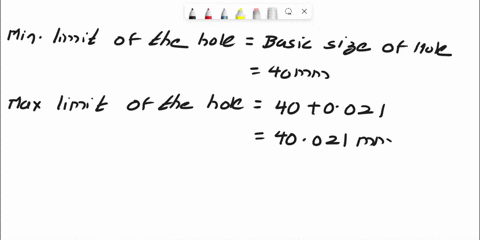 Min. limit of the hole = Basic size of Hole
= 40mm
Max limit of the hole = 40 + 0.021
= 40.021 mm